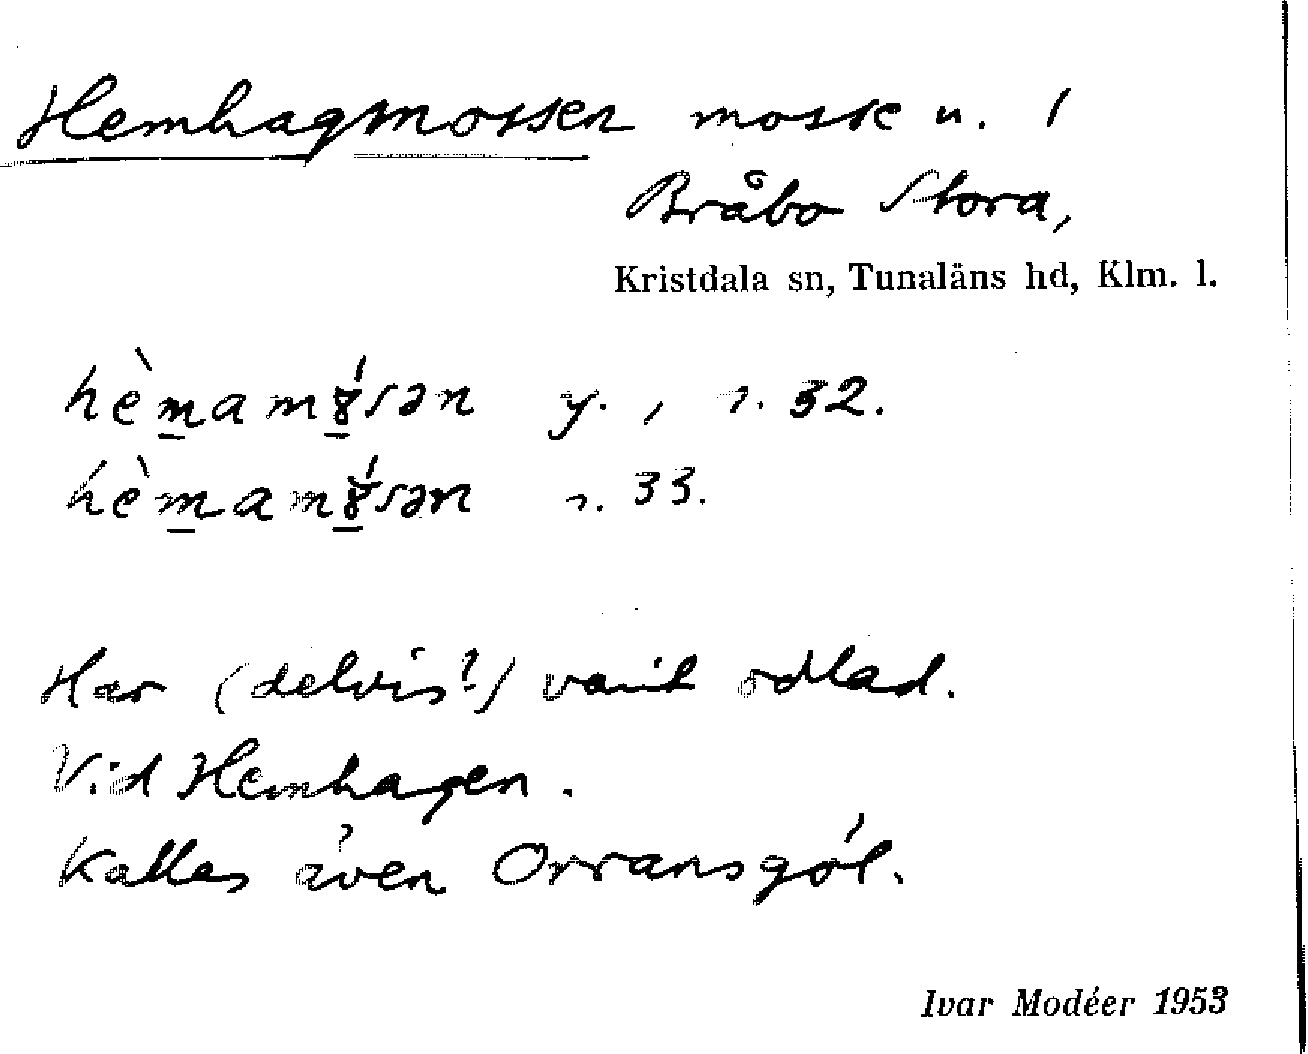 Hemhagmossen mosse u. 1
Bråbo Stora,
Kristdala sn, Tunaläns hd, Klm. l.
hèmamɤ́sən y. , s. 32.
hèmamɤ́sən s. 33.
Har (delvis?) varit odlad.
Vid Hemhagen.
Kallas även Orransgöl.
Ivar Modéer 1953